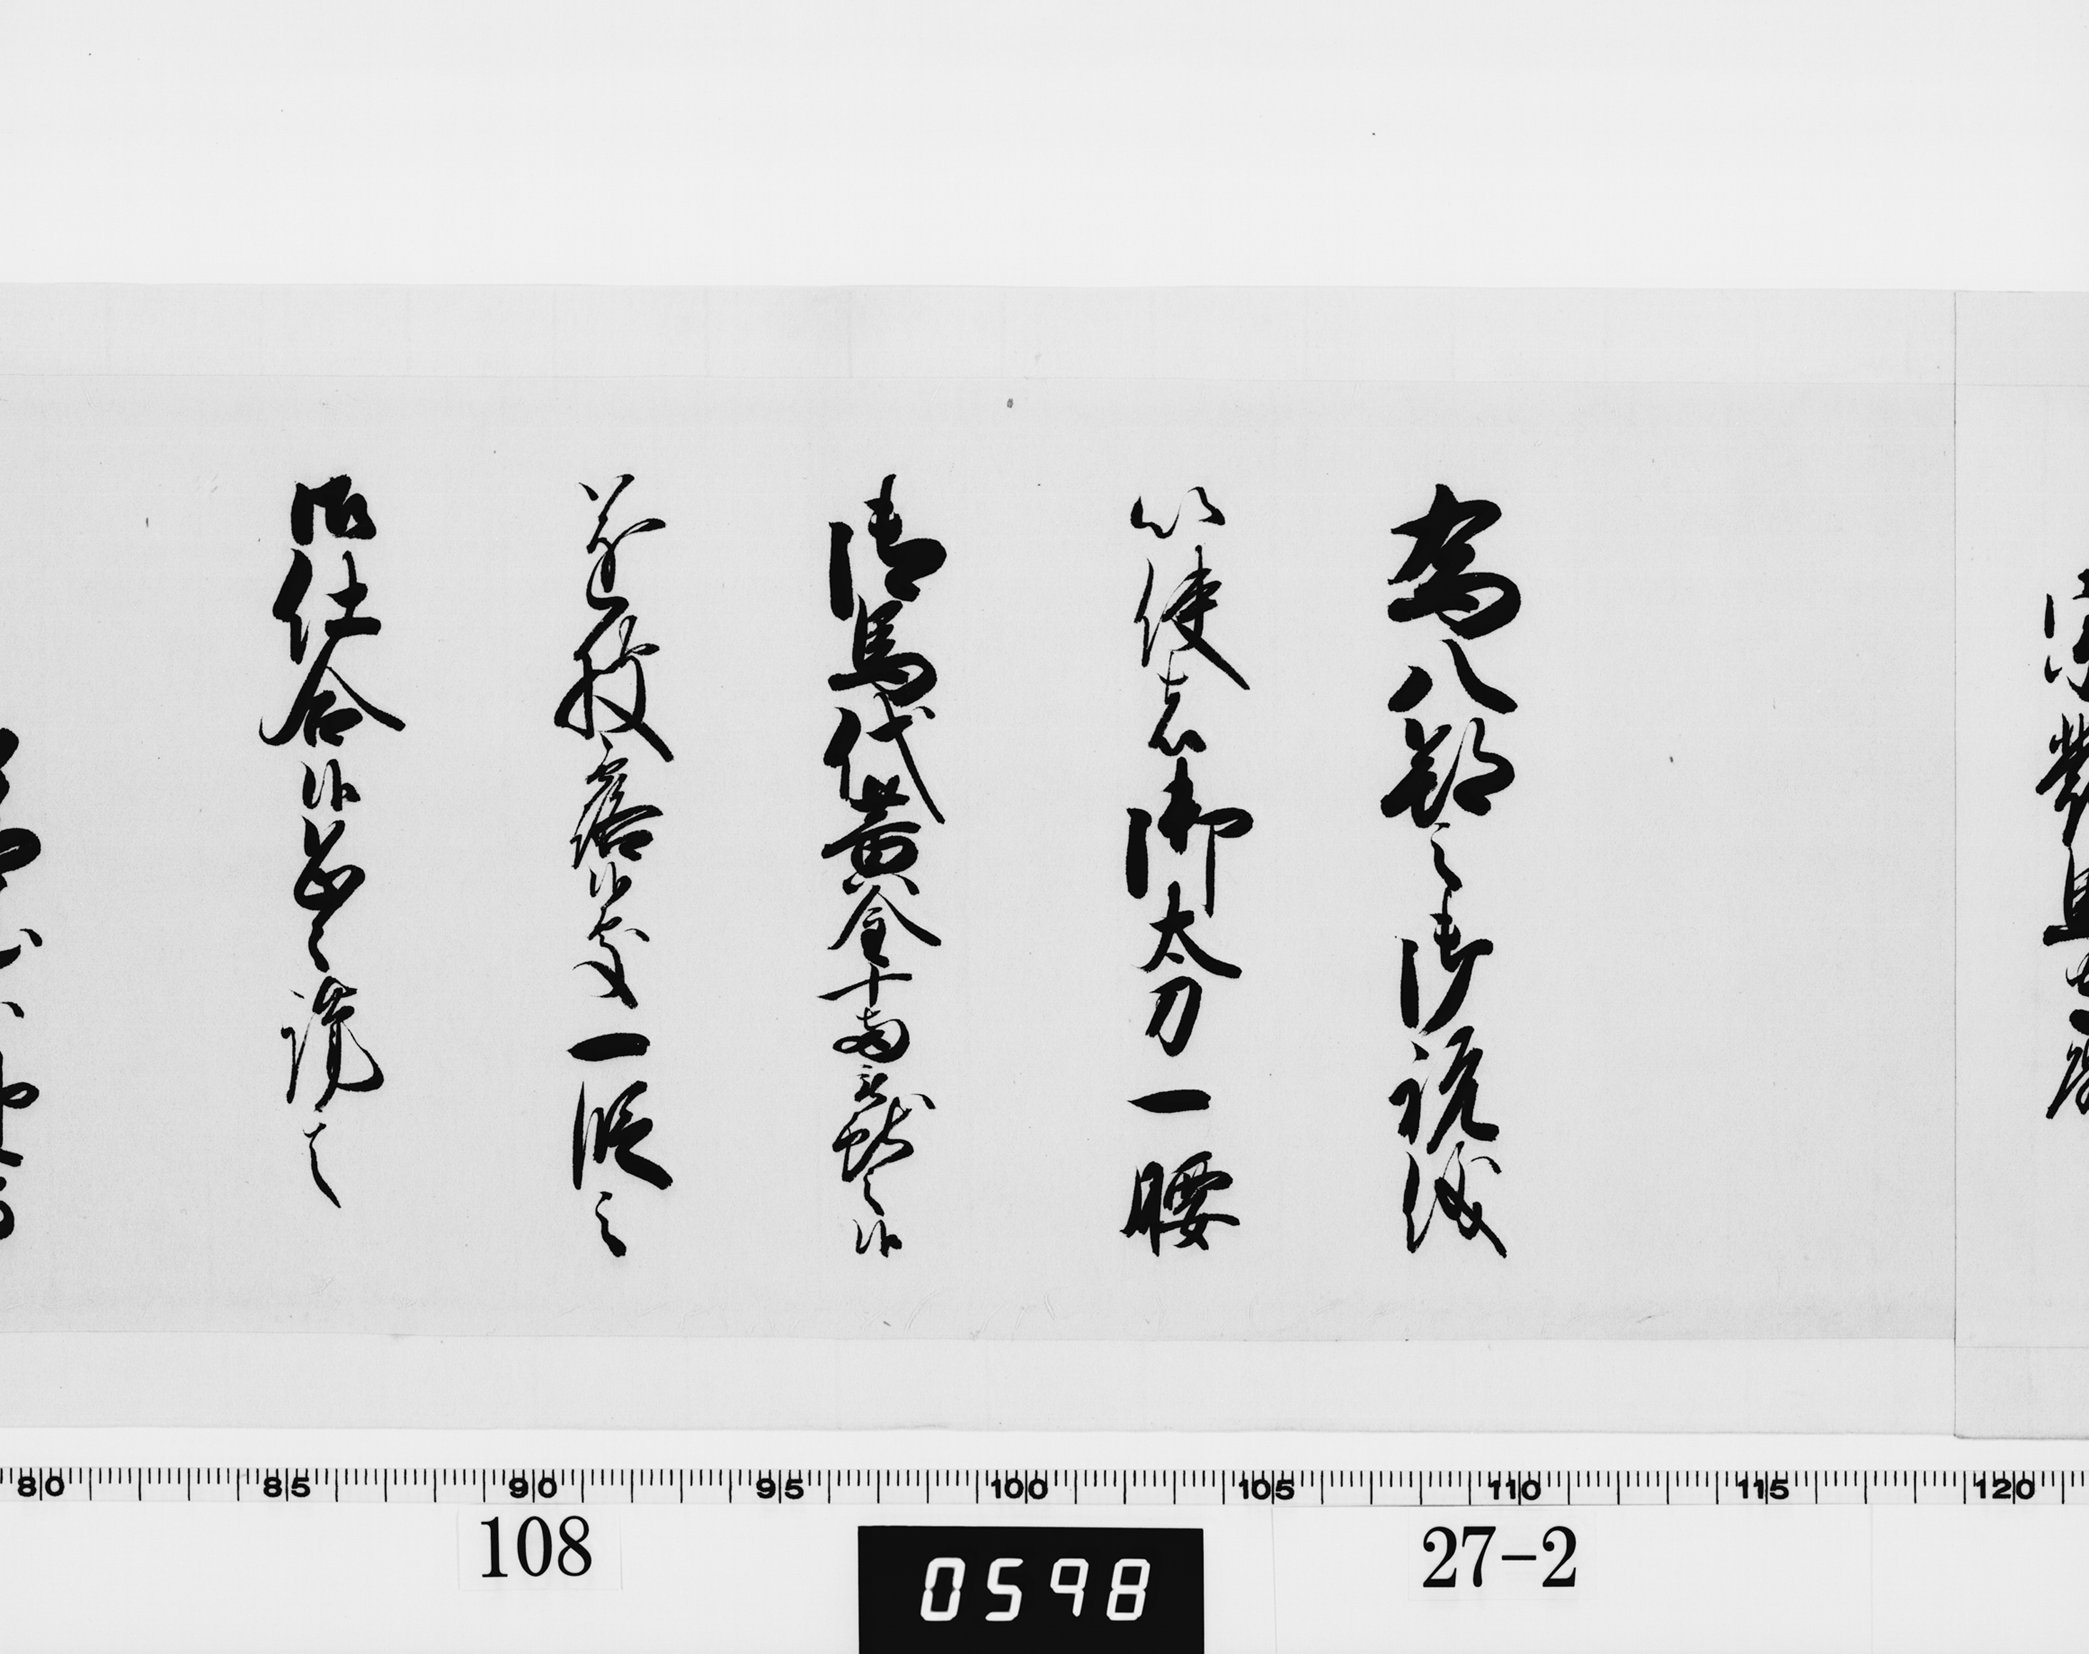 宗對馬守殿
為八朔之御祝儀
以使者御太刀一腰
御馬代黄金十両被献之候
遂披露候処一段之
御仕合候恐々謹言
80 85 90 95 100 105 110 115 120
108
0598
27-2